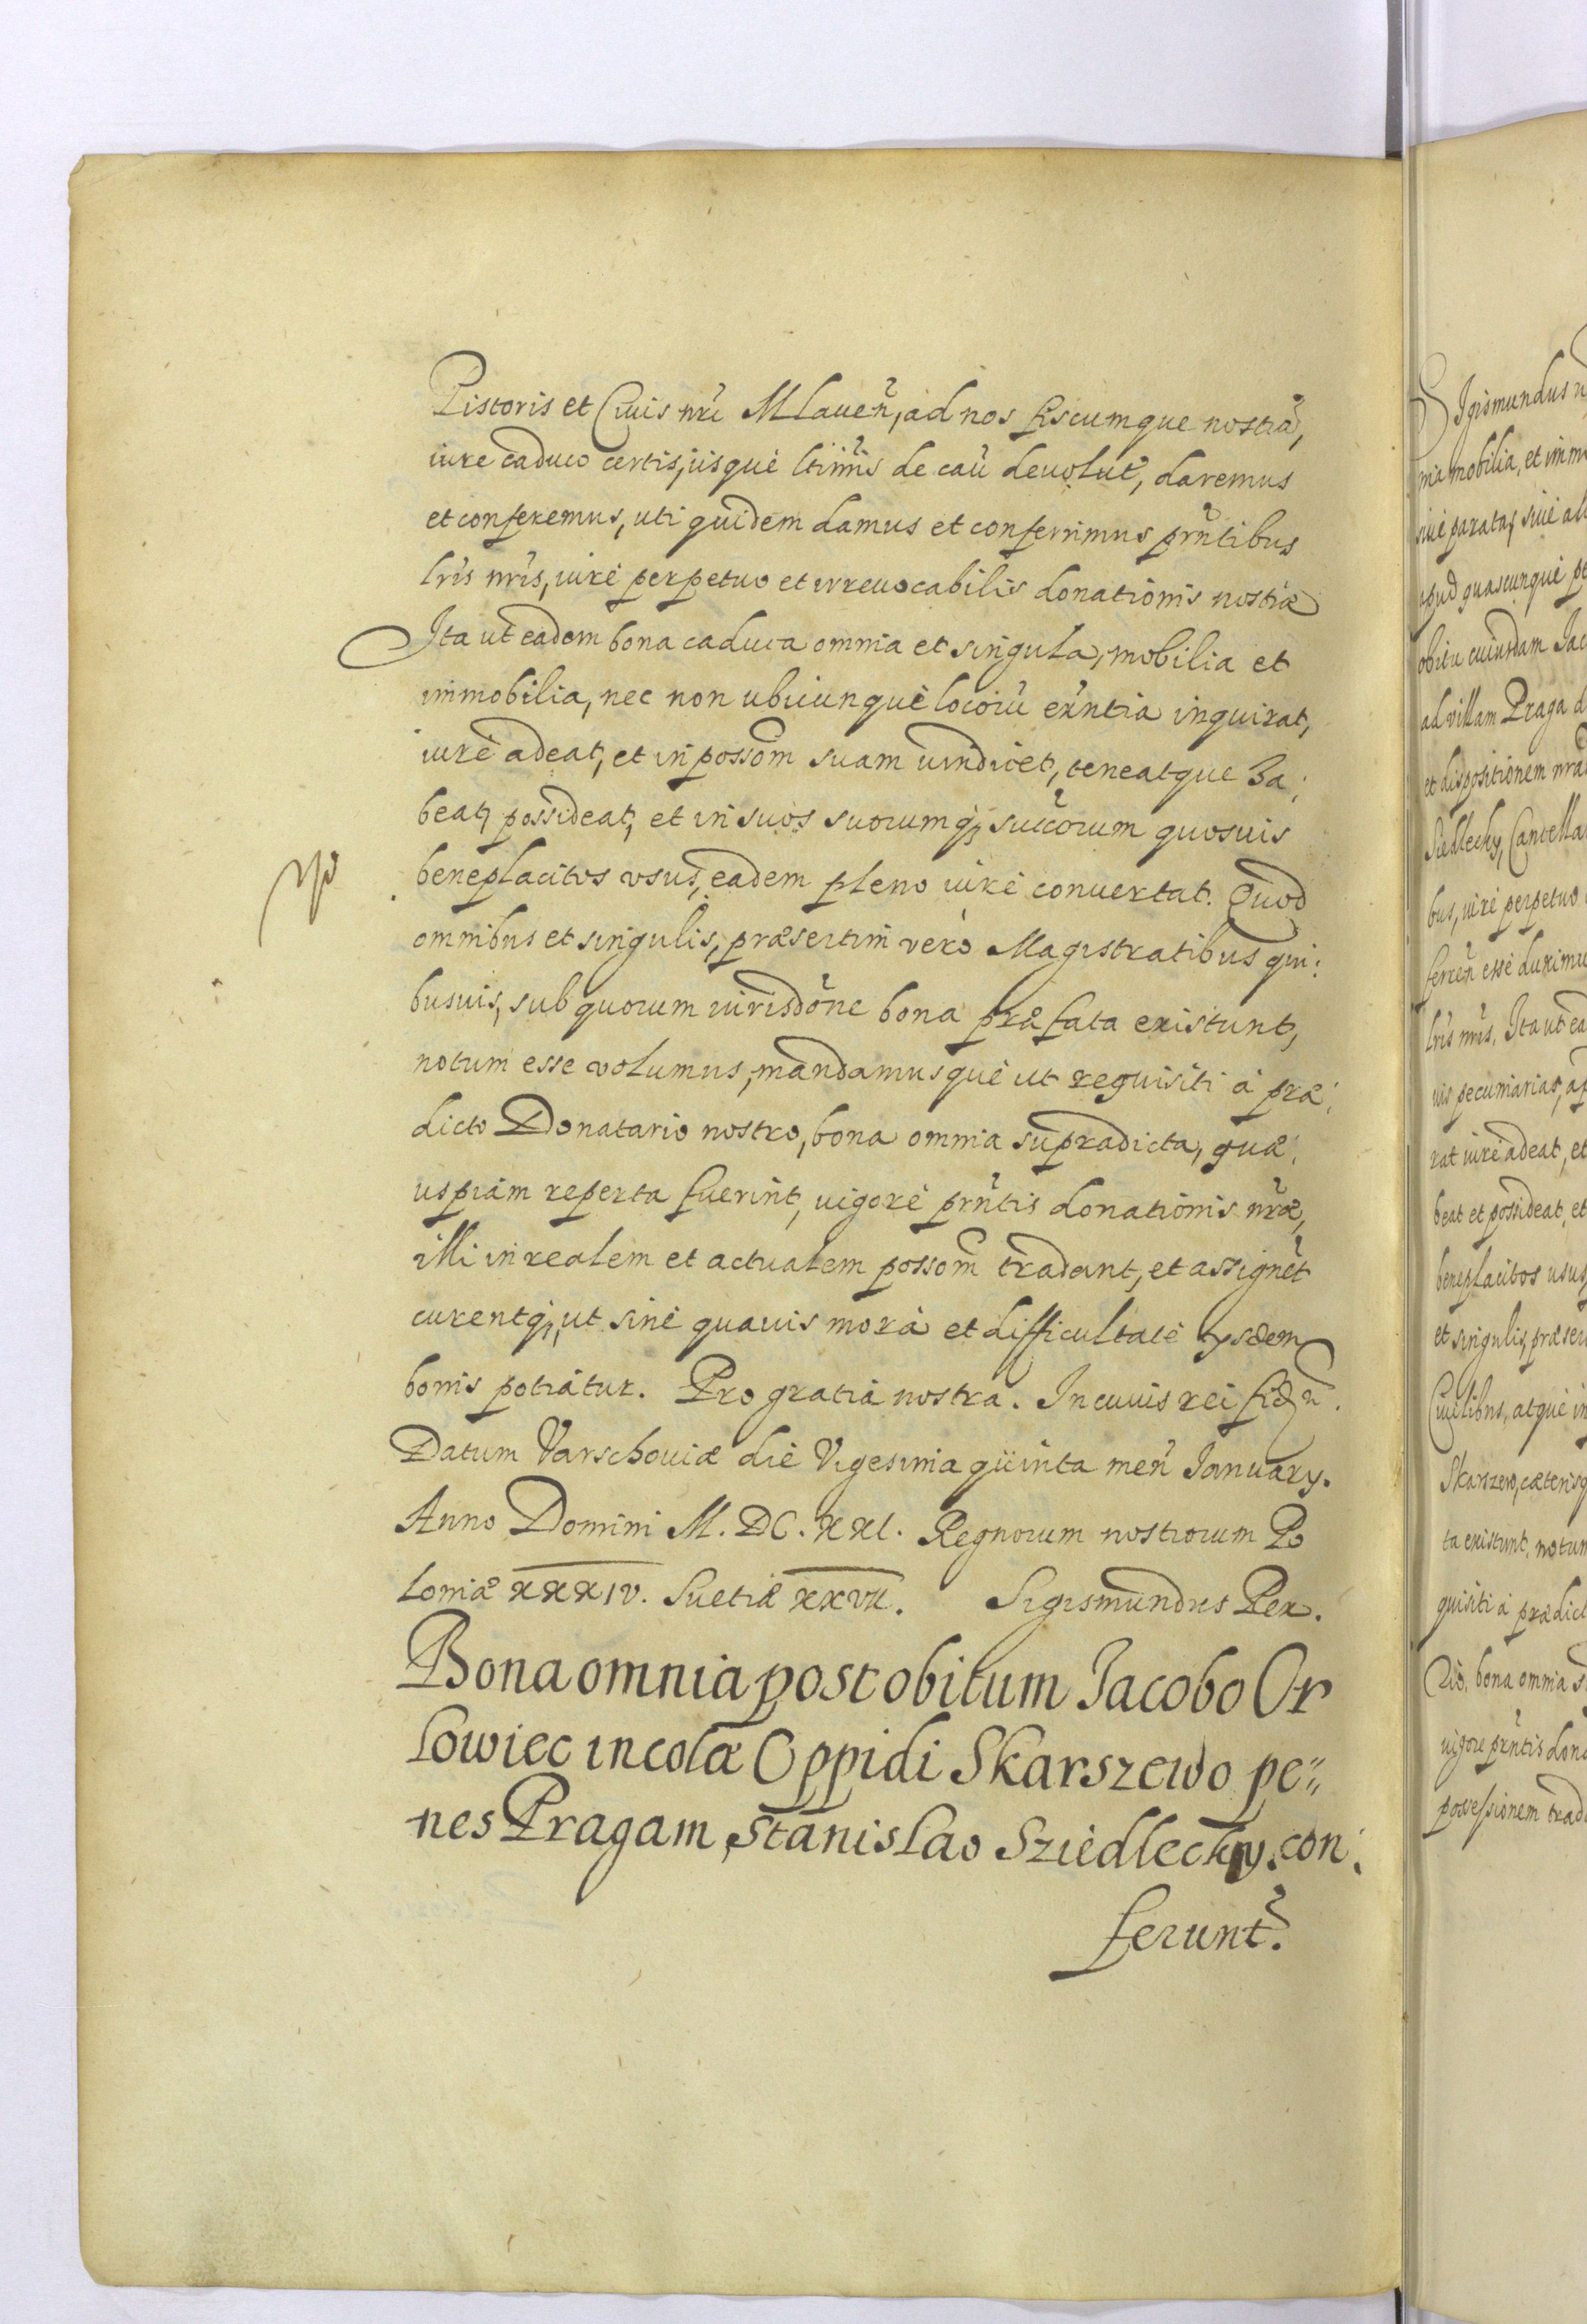 Pistoris et Ciuis nrĩ Mlaueñ, ad nos fiscumque nostrũ,
iure caduco certis, iisquè ltimis de caũ deuolut, daremus
et conferemus, uti quidem damus et conferimus prñtibus
lris nris, iurè perpetuo et irreuocabilis donationis nostræ
Ita ut eadem bona caduca omnia et singula, mobilia et
immobilia, nec non ubicunquè locorũ exñtia inquirat,
iurè adeat, et in possom suam uindicet, teneatque ha:
beat, possideat, et in suos suorumq; succorum quosuis
beneplacitos usus, eadem pleno iurè conuertat. Quod
omnibus et singulis, præsertim verò Magistratibus qui:
busuis, sub quorum iurisdõne bona præfata existunt,
notum esse volumus, mandamusquè ut requisiti à præ:
dicto Donatario nostro, bona omnia supradicta, quæ
uspiam reperta fuerint, uigorè prñtis donationis nræ,
illi in realem et actualem possom tradant, et assignẽt
curentq;, ut sinè quauis morà et difficultatè ijsdem
bonis potiatur. Pro gratia nostra. In cuius rei fid
Datum Varschouiæ diè Vigesima quinta meñ January.
Anno Domini M. DC. XXI. Regnorum nostrorum Po
loniæ XXXIV. Suetiæ XXVII. Sigismundus Rex.
Bona omnia post obitum Jacobo Or
lowiec incolæ Oppidi Skarszewo pe"
nes Pragam, Stanislao Sziedlecky. con:
ferunt.
Sigismundus
mobilia, et imm
siuè paratas siuè al
apud quascunquè pe
obitu cuiusdam Jac
ad villam Praga d
et dispositionem nrã
Siedlecky, Cancella
bus, iurè perpetuo
ferreñ essè duximu
lris nris. Ita ut ea
uis pecuniarias, ap
rat iurè adeat, et
beat et possideat, et
beneplacitos usus
et singulis, præser
Ciuilibus, atquè in
Skarszewo, cæterisq
ta existunt, notum
quisiti à prædict
rio, bona omnia s
uigore prñtis dona
possessionem trada